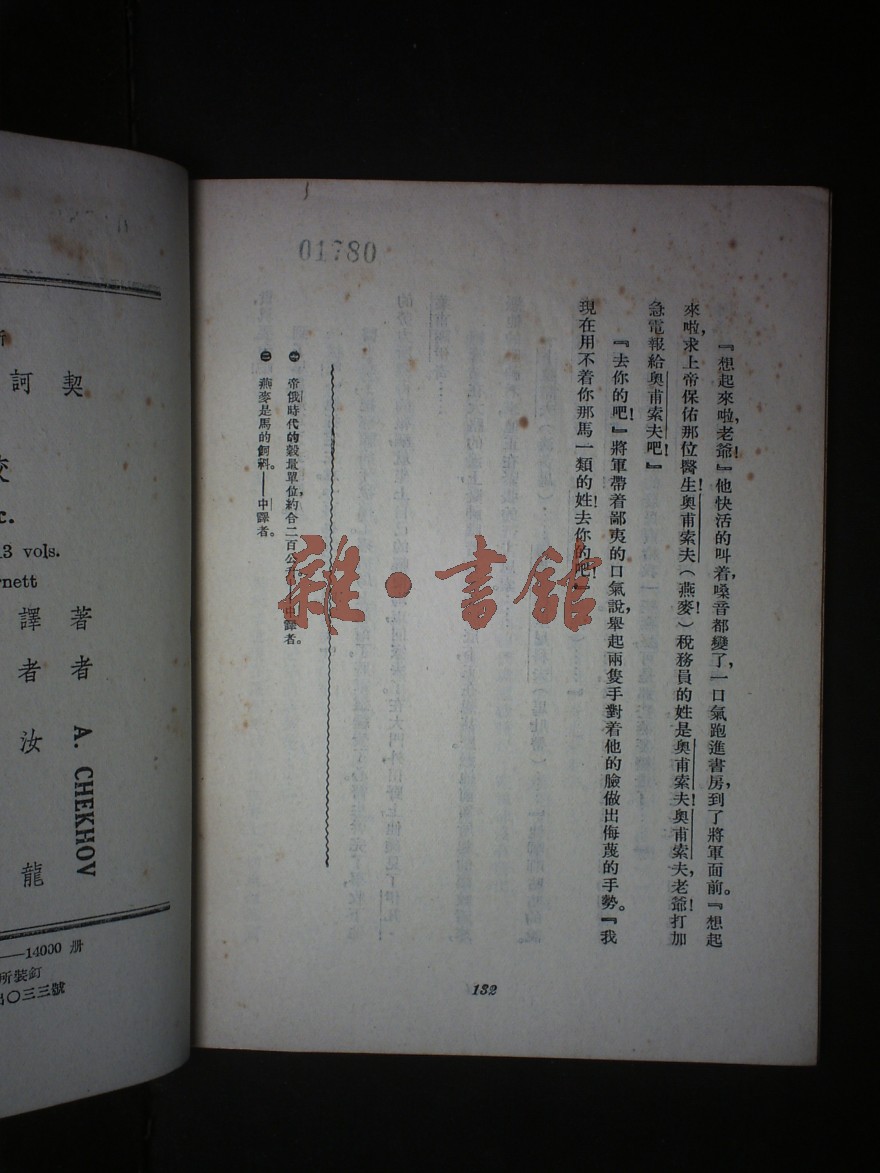 01780
『想起來啦，老爺！』他快活的叫着，嗓音都變了，一口氣跑進書房，到了將軍面前。『想起
來啦，求上帝保佑那位醫生！奧甫索夫（燕麥）！稅務員的姓是奧甫索夫！奧甫索夫，老爺！打加
急電報給奧甫索夫吧！』
『去你的吧！』將軍帶着鄙夷的口氣說，舉起兩隻手對着他的臉做出侮蔑的手勢。『我
現在用不着你那馬一類的姓！去你的吧！』
㊀ 帝俄時代的穀量單位，約合二百公升——中譯者。
㊁ 燕麥是馬的飼料。——中譯者。
132
雜·書館
契訶
13 vols.
著者 A. CHEKHOV
譯者 汝龍
—14000 册
所裝釘
出〇三三號